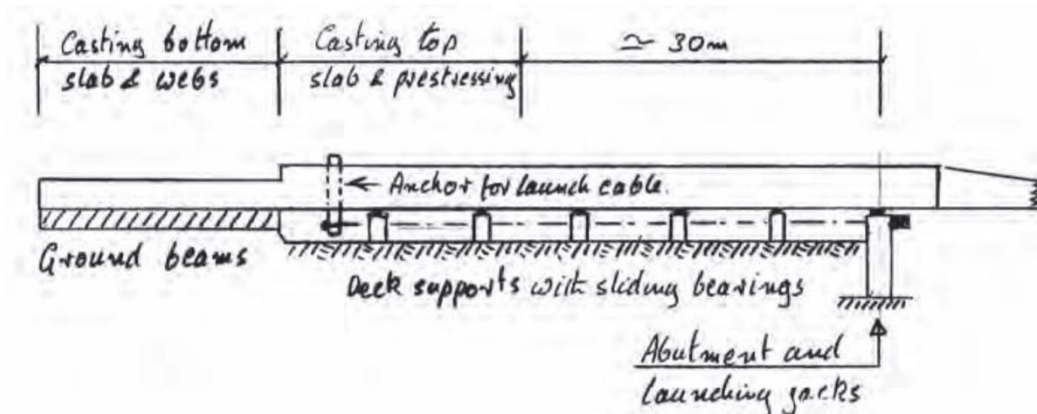 Casting bottom
slab & webs
Casting top
slab & prestressing
≃ 30m
Anchor for launch cable.
Ground beams
Deck supports with sliding bearings
Abutment and
launching jacks